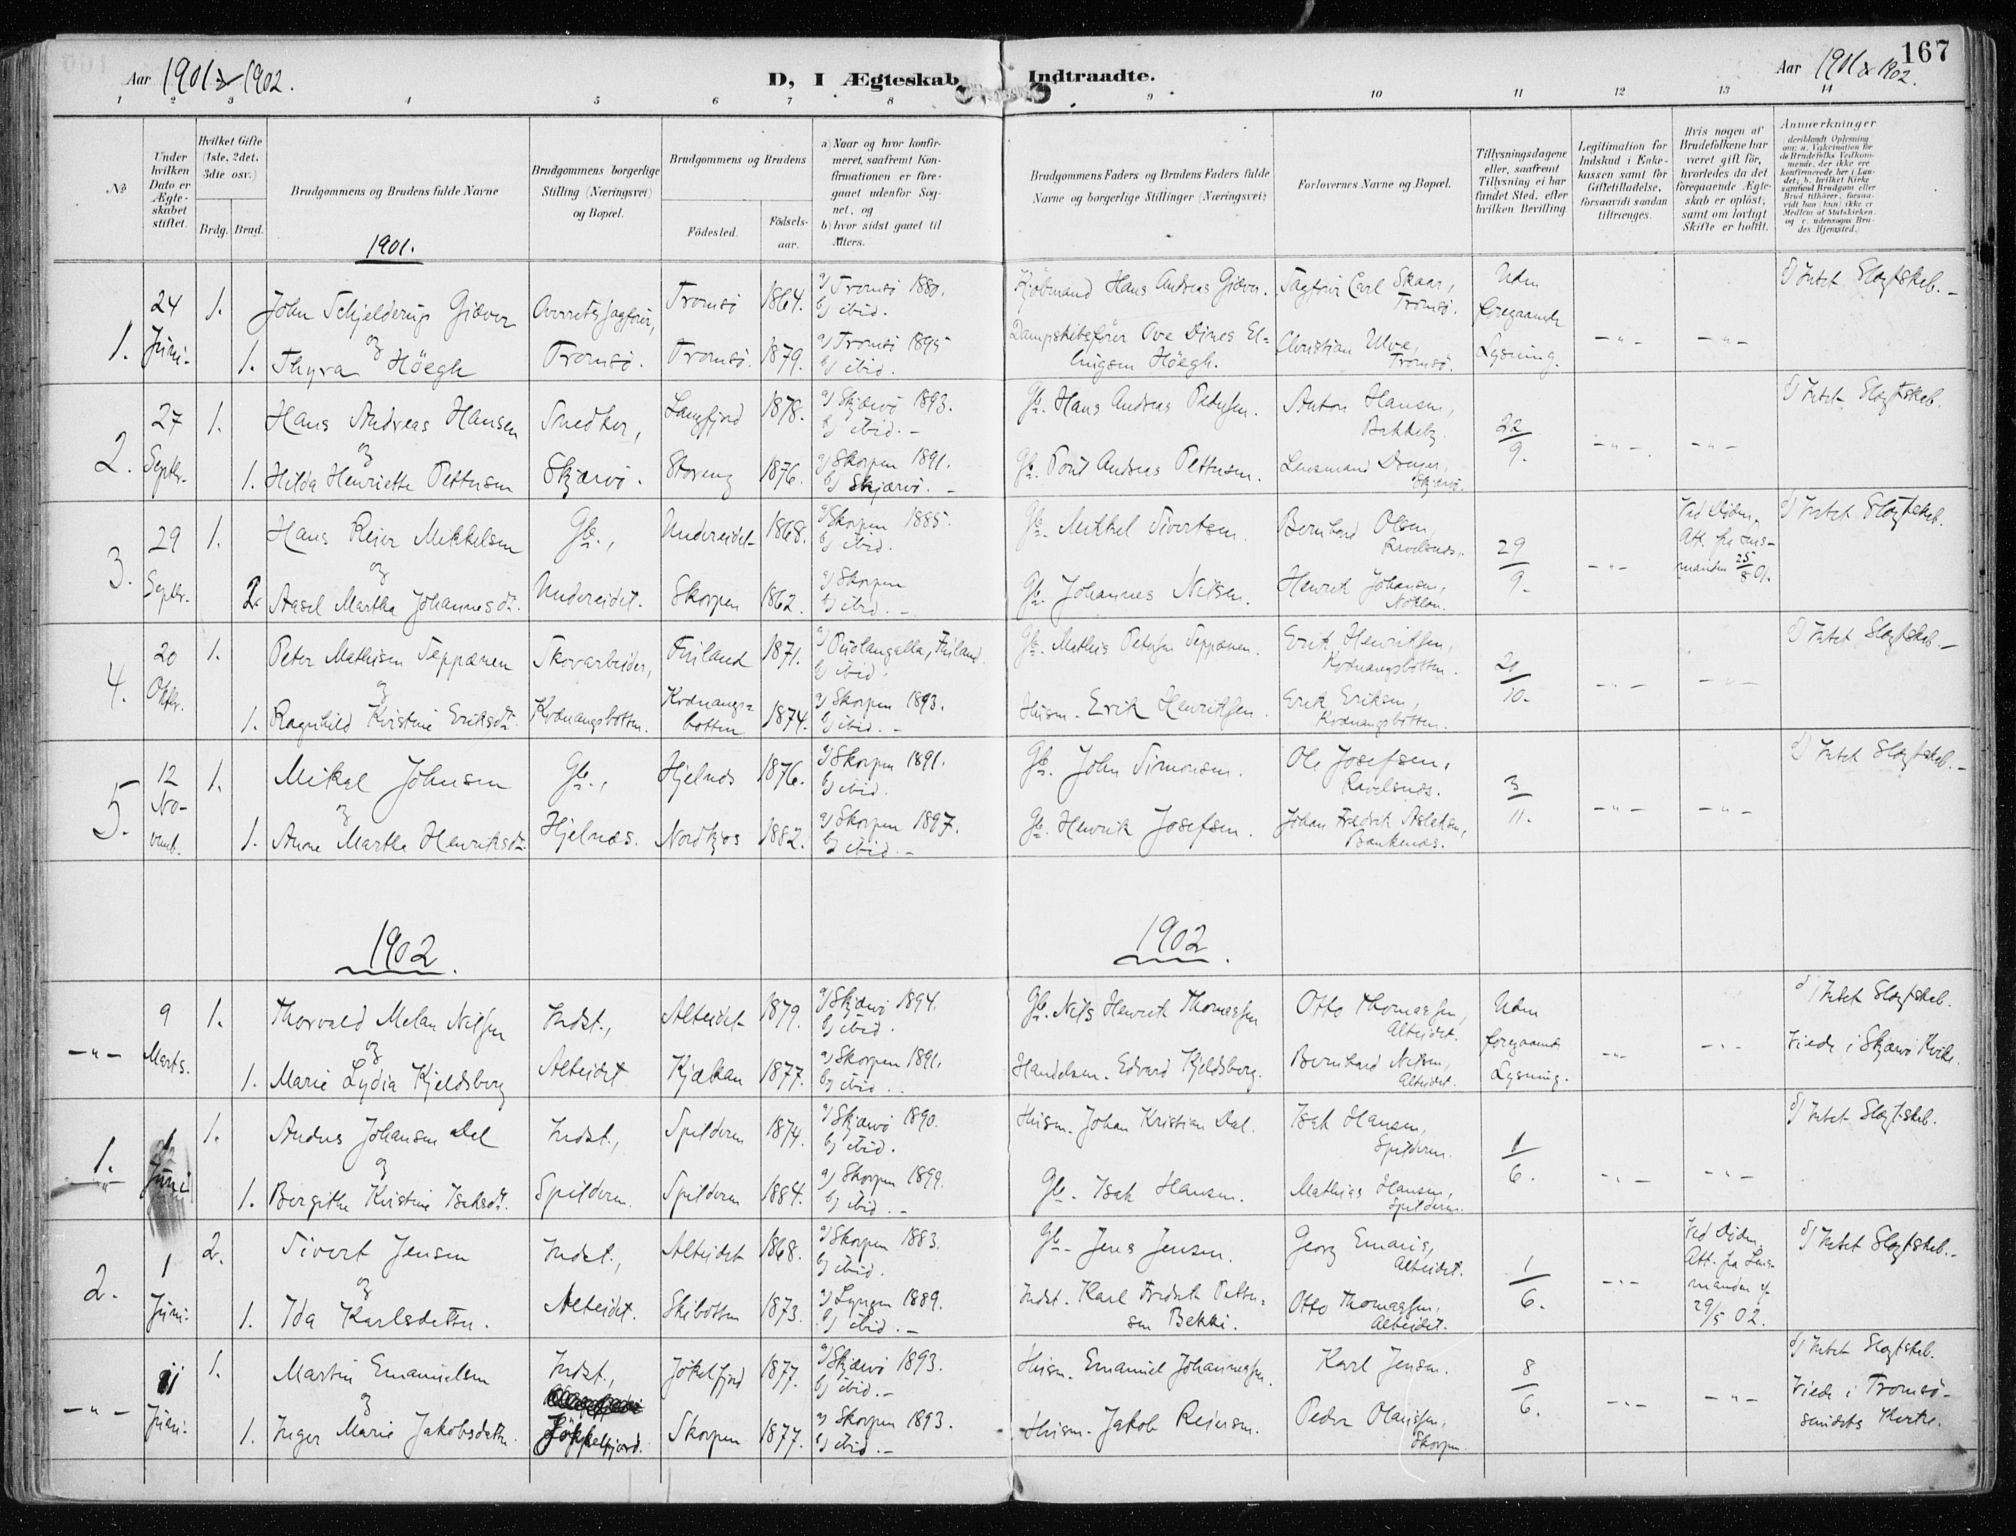 167
Aar 1901 & 1902.
D, I Ægteskab Indtraadte.
Aar 1901 & 1902.
1 2 3 4 5 6 7 8 9 10 11 12 13 14
No
Under hvilken Dato er Ægteskabet stiftet.
Hvilket Gifte (1ste, 2det, 3die osv.)
Brdg. Brud.
Brudgommens og Brudens fulde Navne
Brudgommens borgerlige Stilling (Næringsvei) og Bopæl.
Brudgommens og Brudens
Födested.
Födselsaar.
a) Naar og hvor konfirmeret, saafremt Konfirmationen er foregaaet udenfor Sognet, og
b) hvor sidst gaaet til Alters.
Brudgommens Faders og Brudens Faders fulde Navne og borgerlige Stillinger (Næringsvei)
Forlovernes Navne og Bopæl.
Tillysningsdagene eller, saafremt Tillysning ei har fundet Sted, efter hvilken Bevilling.
Legitimation for Indskud i Enkekassen samt for Giftetilladelse, forsaavidt saadan tiltrænges.
Hvis nogen af Brudefolkene har været gift för, hvorledes da det foregaaende Ægteskab er oplöst; samt om lovligt Skifte er holdt.
Anmærkninger
1901.
1. 24 Juni. 1. John Schjelderup Giæver Overretssagfører, Tromsö 1864. a) Tromsö 1880. b) ibid. Kjøbmand Hans Andreas Giæver. Sagfører Carl Skaar, Tromsö. Uden foregaaende Lysning. d) Intet Slægtskab.
og
1. Thyra Höegh Tromsö. Tromsö. 1879. a) Tromsö 1895 b) ibid. Dampskibsfører Ove Dines Ellingsen Höegh. Christian Ulve, Tromsö.
2. 27 Septbr. 1. Hans Andreas Hansen Snedker, Langfjord 1878. a) Skjærvö 1893. b) ibid. Gb. Hans Andreas Pedersen. Anton Hansen, 22/9. d) Intet Slægtskab.
og
1. Hilda Henriette Pettersen Skjærvö. Storeng 1876. a) Skorpen 1891. b) Skjærvö. Gb. Poul Andreas Pettersen. Lensmand Skjærvö.
3. 29 Septbr. 1. Hans Reier Mikkelsen Gb., Undereidet 1868. a) Skorpen 1885. b) ibid. Gb. Mikkel Sivertsen. Bernhard Olsen, Ravelsnæs. 29/9. Ved Døden. Att. fra Lensmanden 25/8 01. d) Intet Slægtskab.
og
2. Aasel Martha Johannesdr. Undereidet. Skorpen 1862. a) Skorpen b) ibid. Gb. Johannes Nilsen. Henrik Johansen,
4. 20 Oktbr. 1. Peter Mathisen Seppænen Skovarbeider, Finland 1871. a) Puolangalla, Finland. b) ibid. Gb. Mathis Petersen Seppænen. Erik Henriksen, Kvænangsbotten. 20/10. d) Intet Slægtskab.
og
1. Ragnhild Kristine Eriksdr. Kvænangsbotten. Kvænangsbotten 1874. a) Skorpen 1893. b) ibid. Husm. Erik Henriksen. Erik Eriksen, Kvænangsbotten.
5. 12 Novemb. 1. Mikal Johnsen Gb., Hjelnæs 1876. a) Skorpen 1891. b) ibid. Gb. John Simonsen. Ole Josefsen, Ravelsnæs. 3/11. d) Intet Slægtskab.
og
1. Anne Martha Henriksdr. Hjelnæs. Nordkjos 1882. a) Skorpen 1897. b) ibid. Gb. Henrik Josefsen. Johan Fredrik Aslaksen,
1902. 1902.
9 Marts. 1. Thorvald Melan Nilsen Indst., Alteidet 1879. a) Skjærvö 1894. b) ibid. Gb. Nils Henrik Thomassen Otto Thomassen, Alteidet. Uden foregaaende Lysning. d) Intet Slægtskab. Viede i Skjærvö Kirke.
og
1. Marie Lydia Kjeldsberg Alteidet Kjækan 1877. a) Skorpen 1891. b) ibid. Handelsm. Edvard Kjeldsberg. Bernhard Nilsen, Alteidet.
1. 1 Juni 1. Anders Johansen Dal Indst., Spilderen 1874. a) Skjærvö 1890. b) ibid. Husm. Johan Kristian Dal. Isak Hansen, Spilderen. 1/6. d) Intet Slægtskab.
og
1. Bergithe Kirstine Isaksdr. Spilderen. Spilderen 1884. a) Skorpen 1899. b) ibid. Gb. Isak Hansen. Mathias Hansen, Spilderen.
2. 1 Juni. 2. Sivert Jensen Indst., Alteidet 1868. a) Skorpen 1883. b) ibid. Gb. Jens Jensen. Georg Emaus, Alteidet. 1/6. Ved Døden. Att. fra Lensmanden af 29/5 02. d) Intet Slægtskab.
og
1. Ida Karlsdatter. Alteidet. Skibotten 1873. a) Lyngen 1889. b) ibid. Indst. Karl Fredrik Pettersen Bekki. Otto Thomassen, Alteidet.
11 Juni. 1. Martin Emanuelsen Indst., Jökelfjord 1877. a) Skjærvö 1893. b) ibid. Husm. Emanuel Johannessen. Karl Jensen. 8/6. d) Intet Slægtskab. Viede i Tromsösundets Kirke.
og
1. Inger Marie Jakobsdatter. Jökkelfjord. Skorpen 1877. a) Skorpen 1893. b) ibid. Husm. Jakob Reiersen. Peder Olaussen, Skorpen